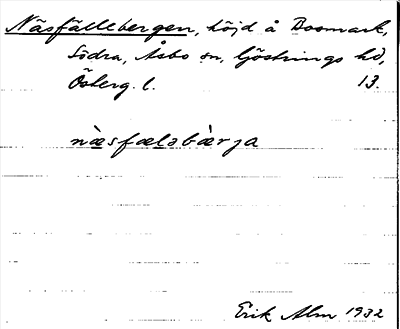 Näsfällebergen, höjd å Bosmark,
Södra, Åsbo sn, Göstrings hd,
Österg. l. 13.
nǜsfæləbæ̀rja
Erik Alm 1932